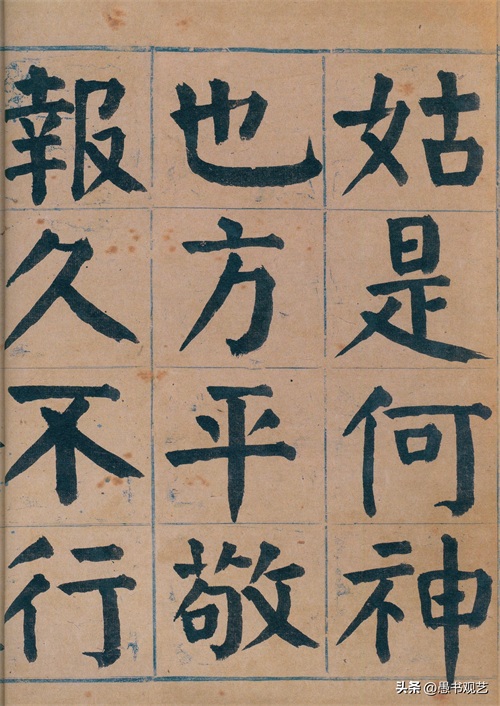 姑是何神
也方平敬
報久不行
头条@愚书观艺